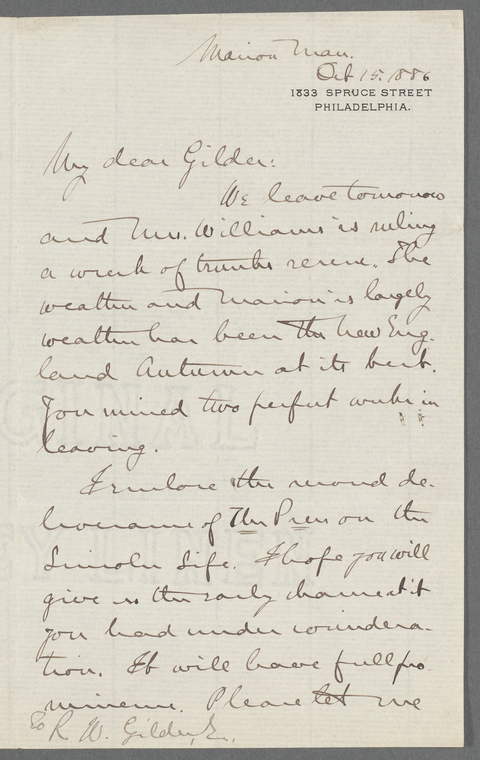 Marion Mass.
Oct 15. 1886
1833 SPRUCE STREET
PHILADELPHIA.
My dear Gilder:
We leave tomorrow
and Mrs. Williams is ruling
a wreck of trunks serene. The
weather and Marion is largely
weather has been the New Eng-
land Autumn at its best.
You missed two perfect weeks in
leaving.
I enclose the second de-
liverance of The Press on the
Lincoln Life. I hope you will
give us the early chance at it
you had under considera-
tion. It will have full pro-
minence. Please let me
To R. W. Gilder, Esq.,
ORIGINAL
LINEN